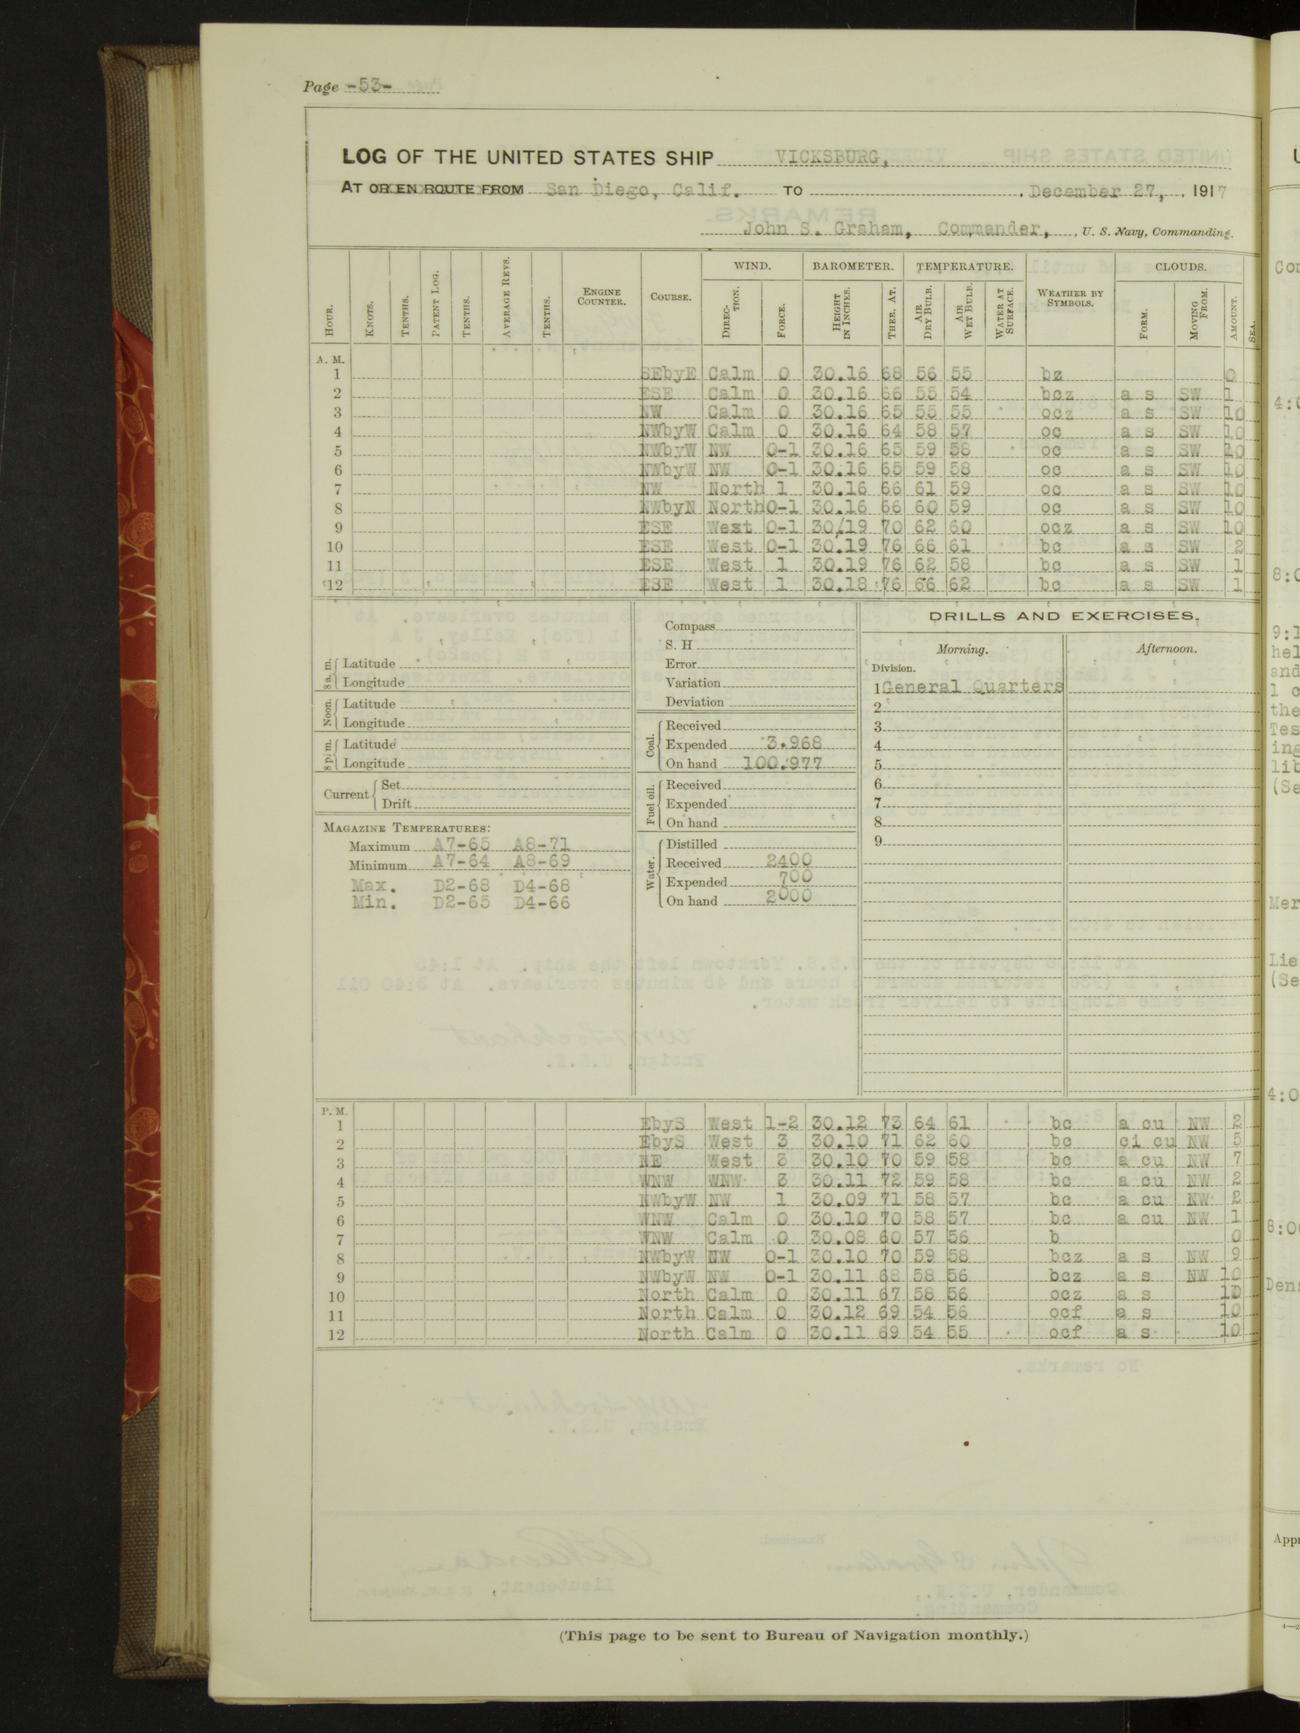 Page -53-
LOG OF THE UNITED STATES SHIP VICKSBURG,
AT OR EN ROUTE FROM San Diego, Calif. TO , December 27, , 1917
John S. Graham, Commander, , U. S. Navy, Commanding.
WIND. BAROMETER. TEMPERATURE. CLOUDS.
HOUR. KNOTS. TENTHS. PATENT LOG. TENTHS. AVERAGE REVS. TENTHS. ENGINE COUNTER. COURSE. DIRECTION. FORCE. HEIGHT IN INCHES. THER. AT. AIR DRY BULB. AIR WET BULB. WATER AT SURFACE. WEATHER BY SYMBOLS. FORM. MOVING FROM. AMOUNT. SEA.
A. M.
1 SEbyE Calm 0 30.16 68 56 55 bz 0
2 ESE Calm 0 30.16 66 55 54 bcz a s SW 1
3 NW Calm 0 30.16 65 55 55 ocz a s SW 10
4 NWbyW Calm 0 30.16 64 58 57 oc a s SW 10
5 NWbyW NW 0-1 30.16 65 59 58 oc a s SW 10
6 NWbyW NW 0-1 30.16 65 59 58 oc a s SW 10
7 NW North 1 30.16 66 61 59 oc a s SW 10
8 NWbyN North 0-1 30.16 66 60 59 oc a s SW 10
9 ESE West 0-1 30/19 70 62 60 ocz a s SW 10
10 ESE West 0-1 30.19 76 66 61 bc a s SW 2
11 ESE West 1 30.19 76 62 58 bc a s SW 1
12 ESE West 1 30.18 76 66 62 bc a s SW 1
8 a. m. Latitude
Longitude
Noon. Latitude
Longitude
8 p. m. Latitude
Longitude
Current Set
Drift
MAGAZINE TEMPERATURES:
Maximum A7-65 A8-71
Minimum A7-64 A8-69
Max. D2-68 D4-68
Min. D2-65 D4-66
Compass
S. H
Error
Variation
Deviation
Coal. Received
Expended 3.968
On hand 100.977
Fuel oil. Received
Expended
On hand
Water. Distilled
Received 2400
Expended 700
On hand 2000
DRILLS AND EXERCISES.
Morning. Afternoon.
Division.
1 General Quarters
2
3
4
5
6
7
8
9
P. M.
1 EbyS West 1-2 30.12 73 64 61 bc a cu NW 2
2 EbyS West 3 30.10 71 62 60 bc ci cu NW 5
3 NE West 3 30.10 70 59 58 bc a cu NW 7
4 WNW WNW 3 30.11 72 59 58 bc a cu NW 2
5 NWbyW NW 1 30.09 71 58 57 bc a cu NW 2
6 WNW Calm 0 30.10 70 58 57 bc a cu NW 1
7 WNW Calm 0 30.08 60 57 56 b 0
8 NWbyW NW 0-1 30.10 70 59 58 bcz a s NW 9
9 NWbyW NW 0-1 30.11 68 58 56 bcz a s NW 10
10 North Calm 0 30.11 67 58 56 ocz a s 10
11 North Calm 0 30.12 69 54 56 ocf a s 10
12 North Calm 0 30.11 69 54 55 ocf a s 10
(This page to be sent to Bureau of Navigation monthly.)